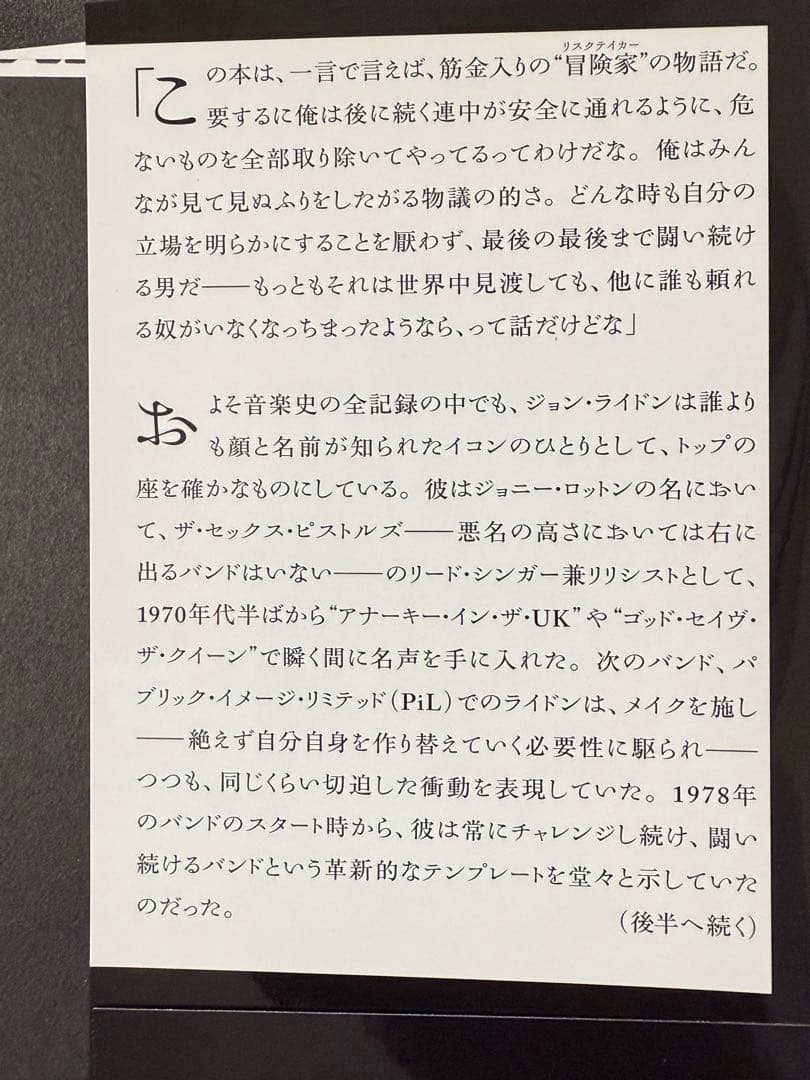 リスクテイカー
「この本は、一言で言えば、筋金入りの“冒険家”の物語だ。
要するに俺は後に続く連中が安全に通れるように、危
ないものを全部取り除いてやってるってわけだな。俺はみん
なが見て見ぬふりをしたがる物議の的さ。どんな時も自分の
立場を明らかにすることを厭わず、最後の最後まで闘い続け
る男だ——もっともそれは世界中見渡しても、他に誰も頼れ
る奴がいなくなっちまったようなら、って話だけどな」
およそ音楽史の全記録の中でも、ジョン・ライドンは誰より
も顔と名前が知られたイコンのひとりとして、トップの
座を確かなものにしている。彼はジョニー・ロットンの名におい
て、ザ・セックス・ピストルズ——悪名の高さにおいては右に
出るバンドはいない——のリード・シンガー兼リリシストとして、
1970年代半ばから“アナーキー・イン・ザ・UK”や“ゴッド・セイヴ・
ザ・クイーン”で瞬く間に名声を手に入れた。次のバンド、パ
ブリック・イメージ・リミテッド（PiL）でのライドンは、メイクを施し
——絶えず自分自身を作り替えていく必要性に駆られ——
つつも、同じくらい切迫した衝動を表現していた。1978年
のバンドのスタート時から、彼は常にチャレンジし続け、闘い
続けるバンドという革新的なテンプレートを堂々と示していた
のだった。 （後半へ続く）